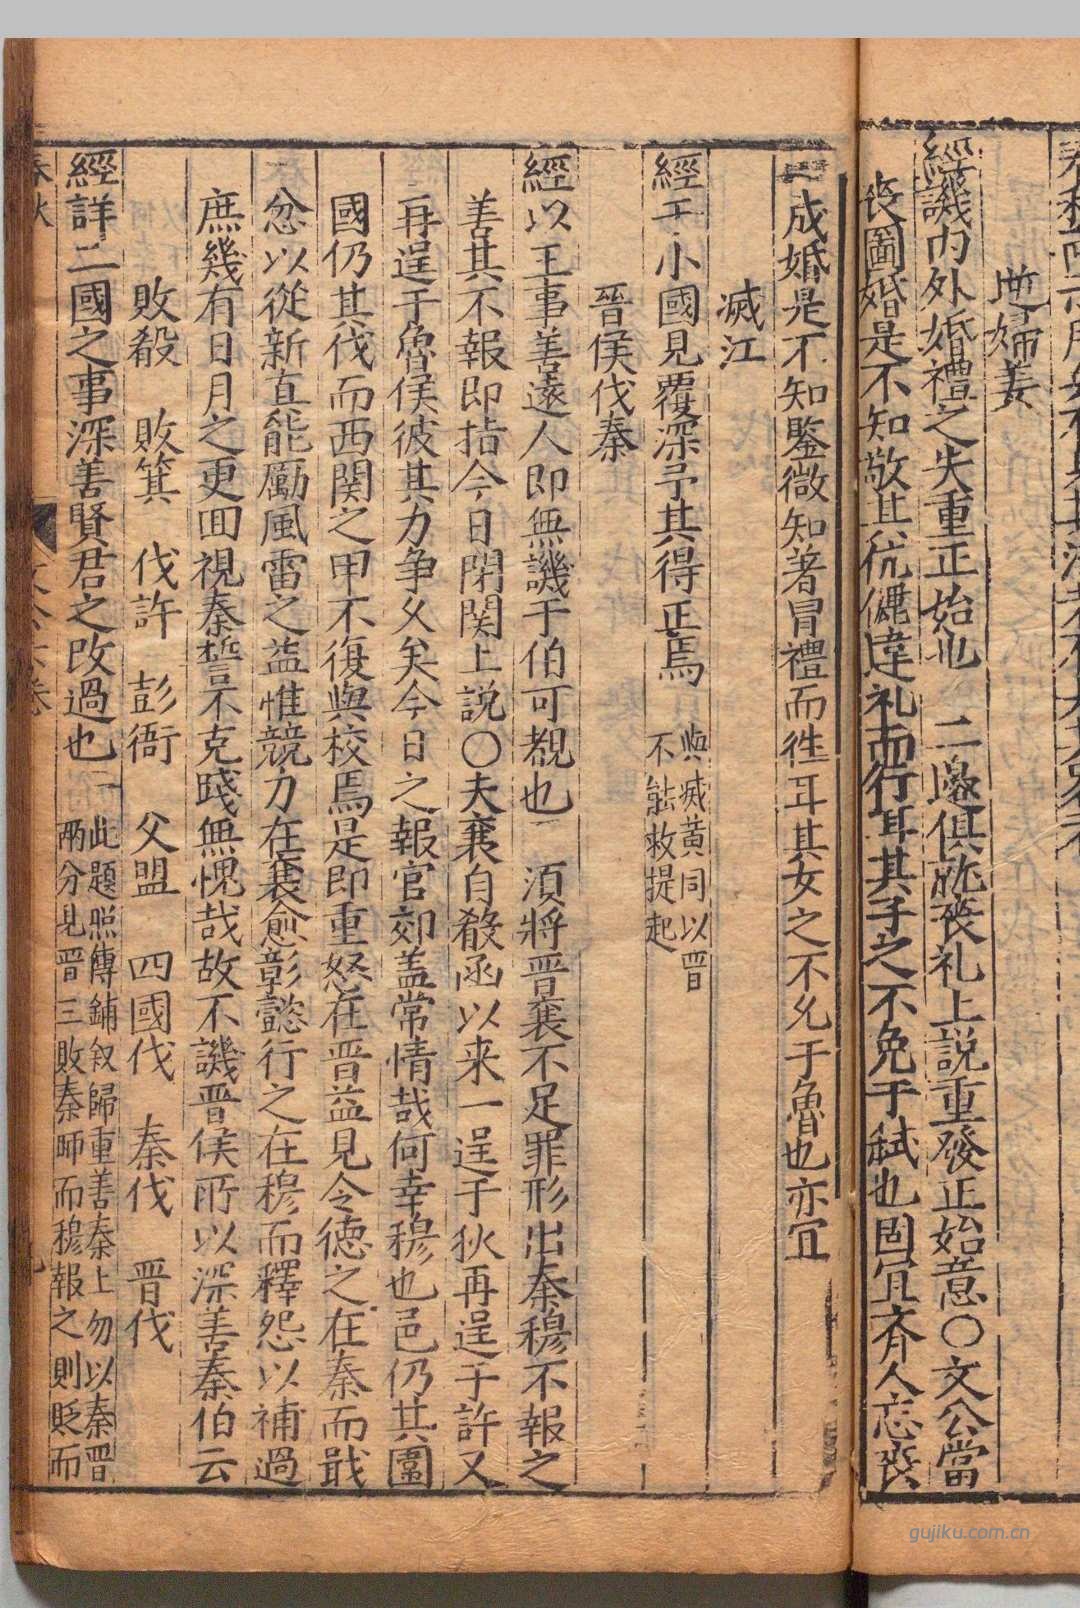 逆婦姜
經譏内外婚禮之失重正始也　二邉俱就丧礼上説重發正始意〇文公當
丧圖婚是不知敬其伉儷違礼而行耳其子之不免于弑也固宜齐人忘丧
成婚是不知鑒微知著冒禮而徃耳其女之不允于魯也亦宜
滅江
經于小國見覆深予其得正焉　與滅黄同以晋
不能救提起
晉侯伐秦
經以王事善遠人即無譏于伯可覩也　須將晋襄不足罪形出秦穆不報之
善其不報即指今日閉関上説〇夫襄自殽函以来一逞于狄再逞于許又
再逞于魯侯彼其力争乆矣今日之報官郊盖常情哉何幸穆也邑仍其圍
國仍其伐而西関之甲不復與校焉是即重怒在晋益見令德之在秦而戢
忿以從新直能勵風雷之益惟競力在襄愈彰懿行之在穆而釋怨以補過
庶幾有日月之更囬視秦誓不克踐無愧哉故不譏晋侯所以深善秦伯云
敗殽　敗箕　伐許　彭衙　父盟　四國伐　秦伐　晋伐
經詳二國之事深善賢君之改過也　此題照傳鋪叙歸重善秦上勿以秦晋
兩分見晋三敗秦師而穆報之則貶而
春秋